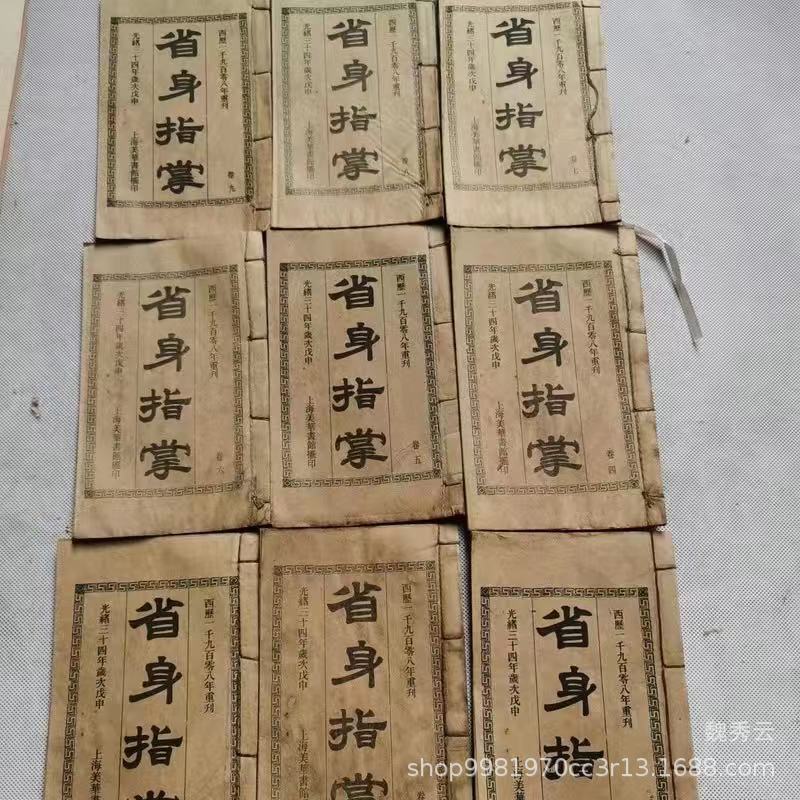 西歷一千九百零八年重刊
卷九
省身指掌
光緒三十四年歲次戊申
上海美華書館擺印
西歷一千九百零八年重刊
卷八
省身指掌
光緒三十四年歲次戊申
上海美華書館擺印
西歷一千九百零八年重刊
卷七
省身指掌
光緒三十四年歲次戊申
上海美華書館擺印
西歷一千九百零八年重刊
卷六
省身指掌
光緒三十四年歲次戊申
上海美華書館擺印
西歷一千九百零八年重刊
卷五
省身指掌
光緒三十四年歲次戊申
上海美華書館擺印
西歷一千九百零八年重刊
卷四
省身指掌
光緒三十四年歲次戊申
上海美華書館擺印
西歷一千九百零八年重刊
省身指掌
光緒三十四年歲次戊申
上海美華書
西歷一千九百零八年重刊
卷
省身指掌
光緒三十四年歲次戊申
上海美華書
西歷一千九百零八年重刊
省身指
光緒三十四年歲次戊申
上海美華書
魏秀云
shop9981970cc3r13.1688.com